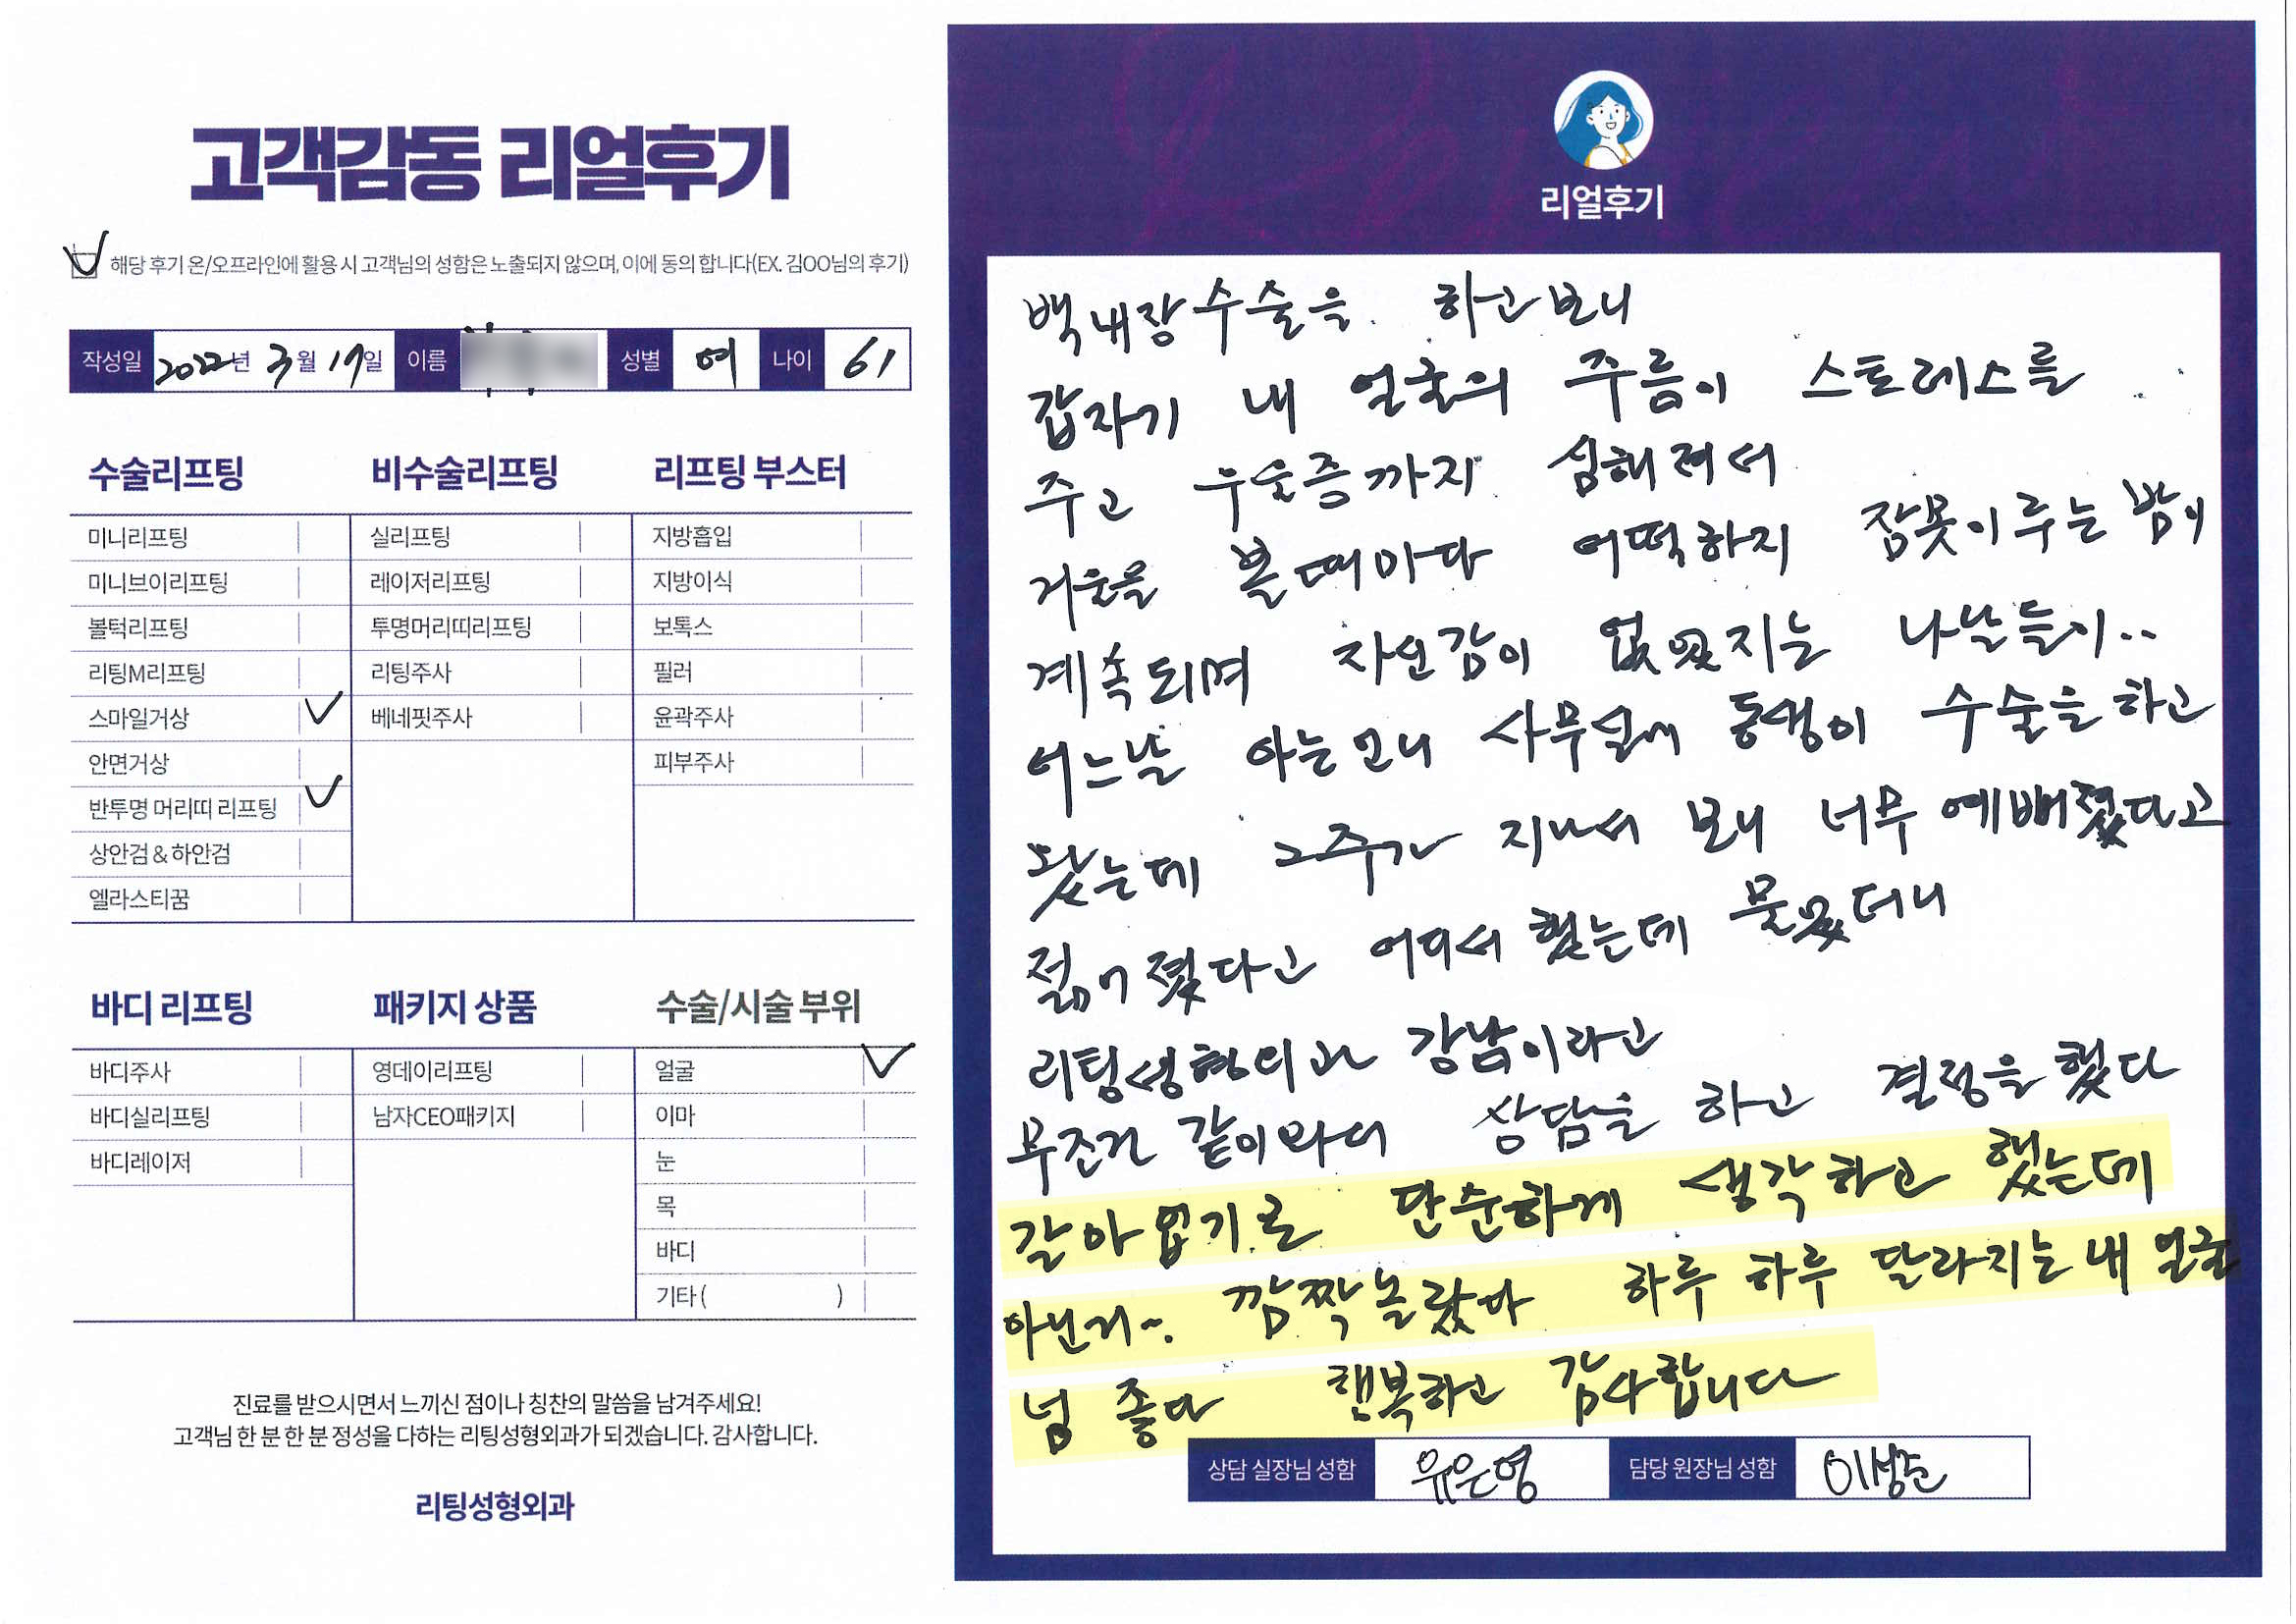 고객감동 리얼후기
해당 후기 온/오프라인에 활용 시 고객님의 성함은 노출되지 않으며, 이에 동의 합니다(EX. 김OO님의 후기)
작성일 2022년 3월 17일 이름 성별 여 나이 61
수술리프팅
미니리프팅
미니브이리프팅
볼턱리프팅
리팅M리프팅
스마일거상
안면거상
반투명 머리띠 리프팅
상안검 & 하안검
엘라스티꿈
비수술리프팅
실리프팅
레이저리프팅
투명머리띠리프팅
리팅주사
베네핏주사
리프팅 부스터
지방흡입
지방이식
보톡스
필러
윤곽주사
피부주사
바디 리프팅
바디주사
바디실리프팅
바디레이저
패키지 상품
영데이리프팅
남자CEO패키지
수술/시술 부위
얼굴
이마
눈
목
바디
기타 ( )
진료를 받으시면서 느끼신 점이나 칭찬의 말씀을 남겨주세요!
고객님 한 분 한 분 정성을 다하는 리팅성형외과가 되겠습니다. 감사합니다.
리팅성형외과
리얼후기
백내장수술을 하고보니
갑자기 내 얼굴의 주름이 스토레스를
주고 우울증까지 심해져서
거울을 볼때마다 어떡하지 잠못이루는 밤이
계속되며 자신감이 없어지는 나날들이..
어느날 아는언니 사무실에 동생이 수술을 하고
왔는데 2주가 지나서 보니 너무 예뻐졌다고
젊어졌다고 어디서 했는데 물었더니
리팅성형외과 강남이라고
무조건 같이와서 상담을 하고 결정을 했다
갈아엎기로 단순하게 생각하고 했는데
아닌거~. 깜짝놀랐다 하루 하루 달라지는 내 얼굴
넘 좋다 행복하고 감사합니다
상담 실장님 성함 유은영 담당 원장님 성함 이성준